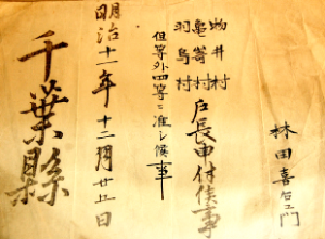 林田喜右衛門
物井村
亀崎村
羽鳥村
戸長申付候事
但等外四等ニ准シ候事
明治十一年十二月廿五日
千葉縣